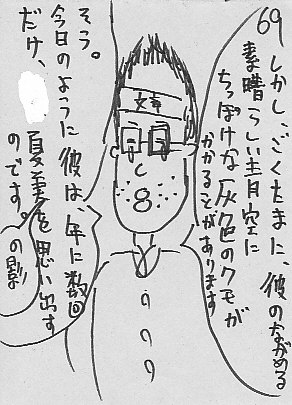 69
しかし、ごくたまに、彼のながめる
素晴らしい青空に
ちっぽけな灰色のクモが
かかることがあります
そう。
今日のように彼は、年に数回
だけ、
夏妻を思い出す
のです。
の影